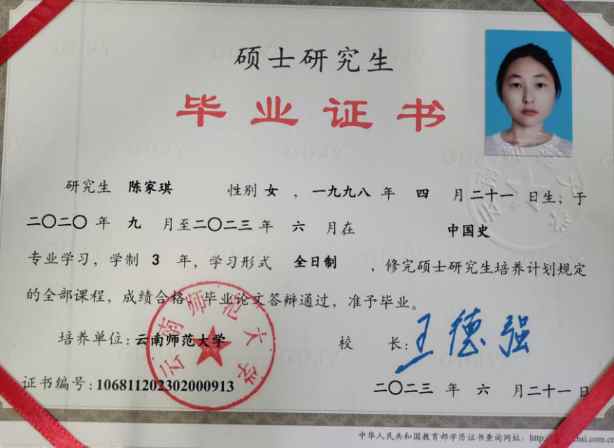 硕士研究生
毕业证书
研究生 陈家琪 性别 女 ，一九九八 年 四 月 二十一 日生，于
二〇二〇 年 九 月至二〇二三 年 六 月在 中国史
专业学习，学制 3 年，学习形式 全日制 ，修完硕士研究生培养计划规定
的全部课程，成绩合格，毕业论文答辩通过，准予毕业。
培养单位：云南师范大学 校 长：王德强
云南师范大学
证书编号：106811202302000913 二〇二三 年 六 月二十一 日
中华人民共和国教育部学历证书查询网址：http